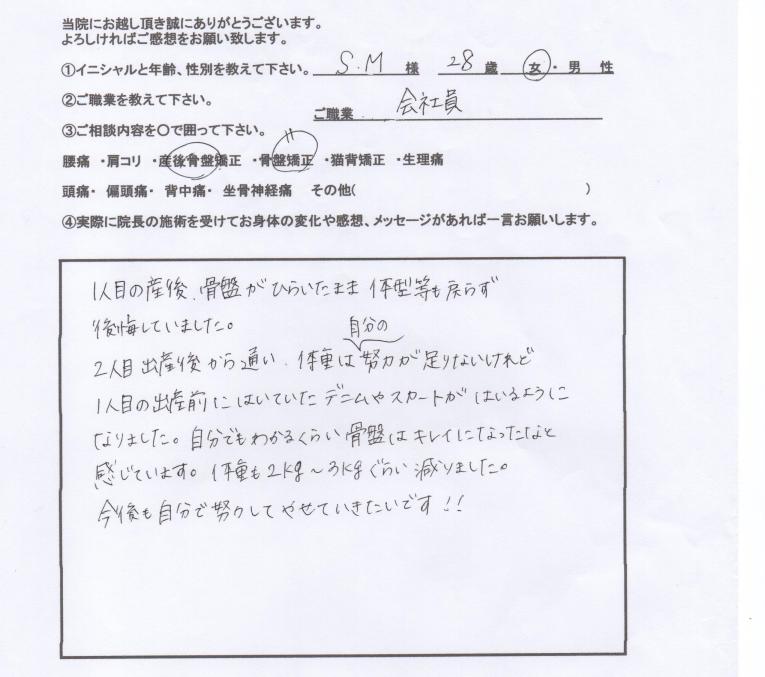 当院にお越し頂き誠にありがとうございます。
よろしければご感想をお願い致します。
①イニシャルと年齢、性別を教えて下さい。 S.M 様 28 歳 女・男 性
②ご職業を教えて下さい。
ご職業 会社員
③ご相談内容を〇で囲って下さい。
腰痛 ・肩コリ ・産後骨盤矯正 ・骨盤矯正 ・猫背矯正 ・生理痛
頭痛・ 偏頭痛・ 背中痛・ 坐骨神経痛 その他( )
④実際に院長の施術を受けてお身体の変化や感想、メッセージがあれば一言お願いします。
1人目の産後、骨盤がひらいたまま 体型等も戻らず
後悔していました。
2人目出産後から通い、体重は自分の努力が足りないけれど
1人目の出産前にはいていたデニムやスカートがはいるように
なりました。自分でもわかるくらい骨盤はキレイになったなと
感じています。体重も2kg～3kgぐらい減りました。
今後も自分で努力してやせていきたいです!!